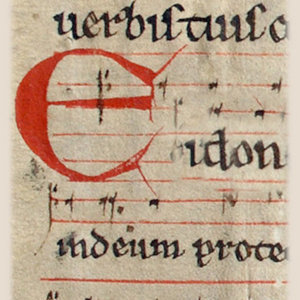 verbis tuis
E
idon
in deum prote